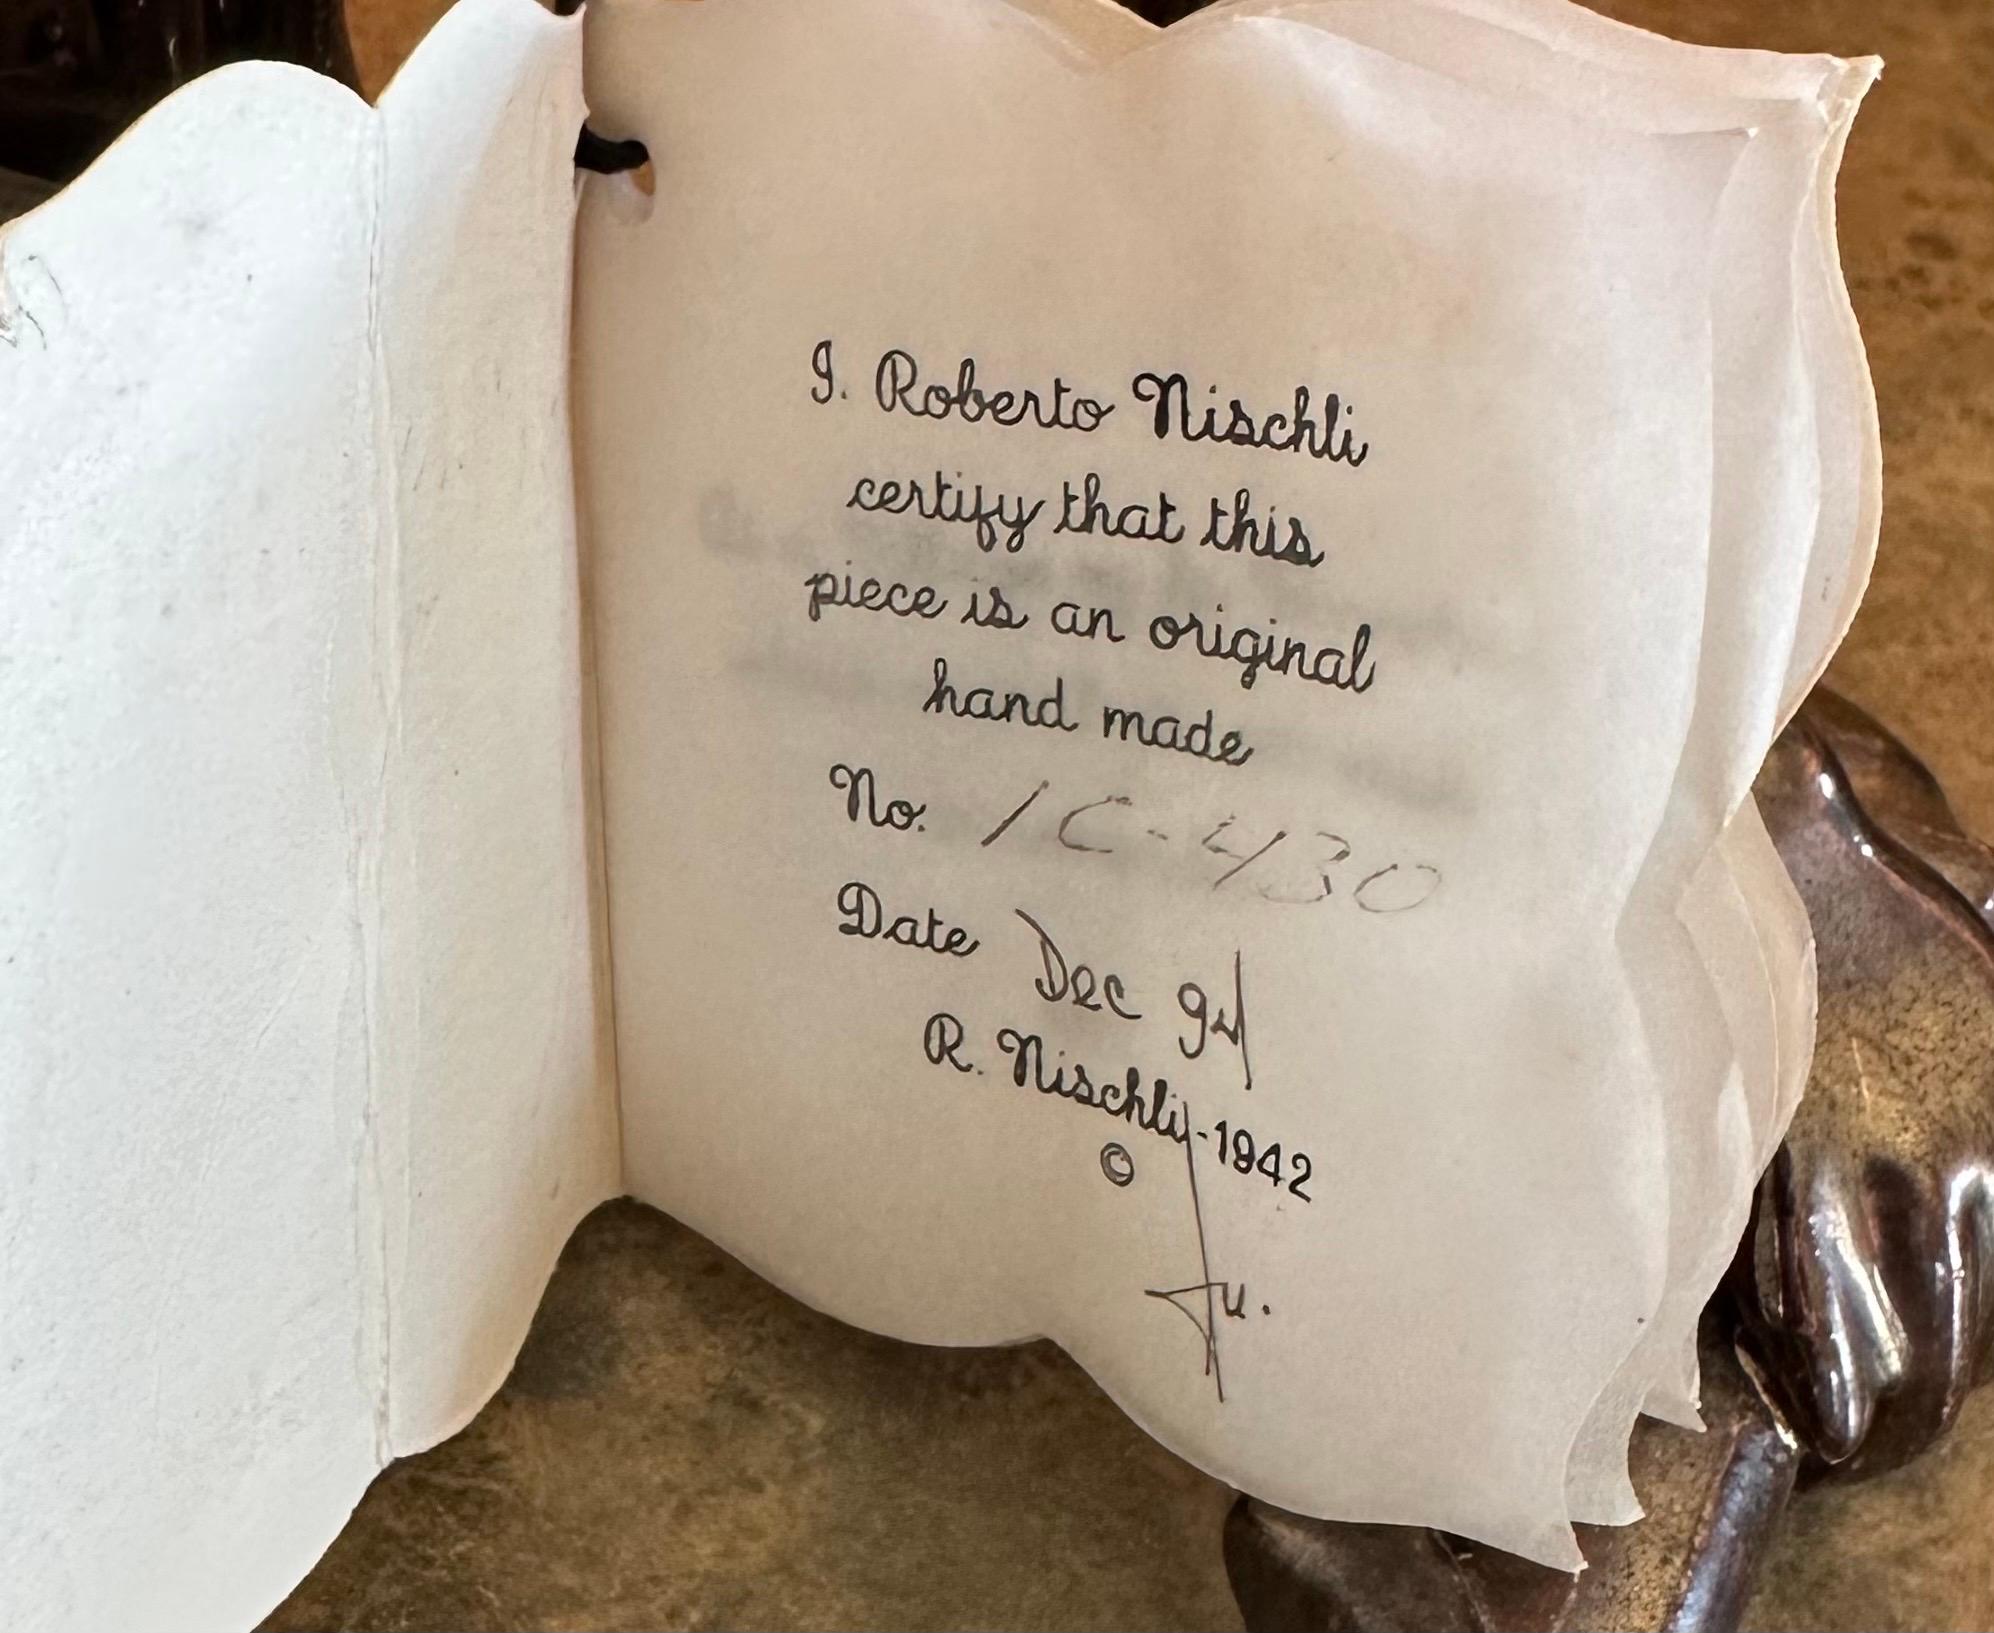 I. Roberto Nischli
certify that this
piece is an original
hand made
No. 1C-430
Date Dec 94
R. Nischli-1942
©